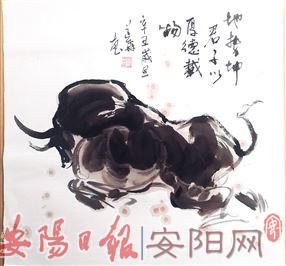 地势坤
君子以
厚德载
物
辛丑岁旦
安陽日報|安阳网